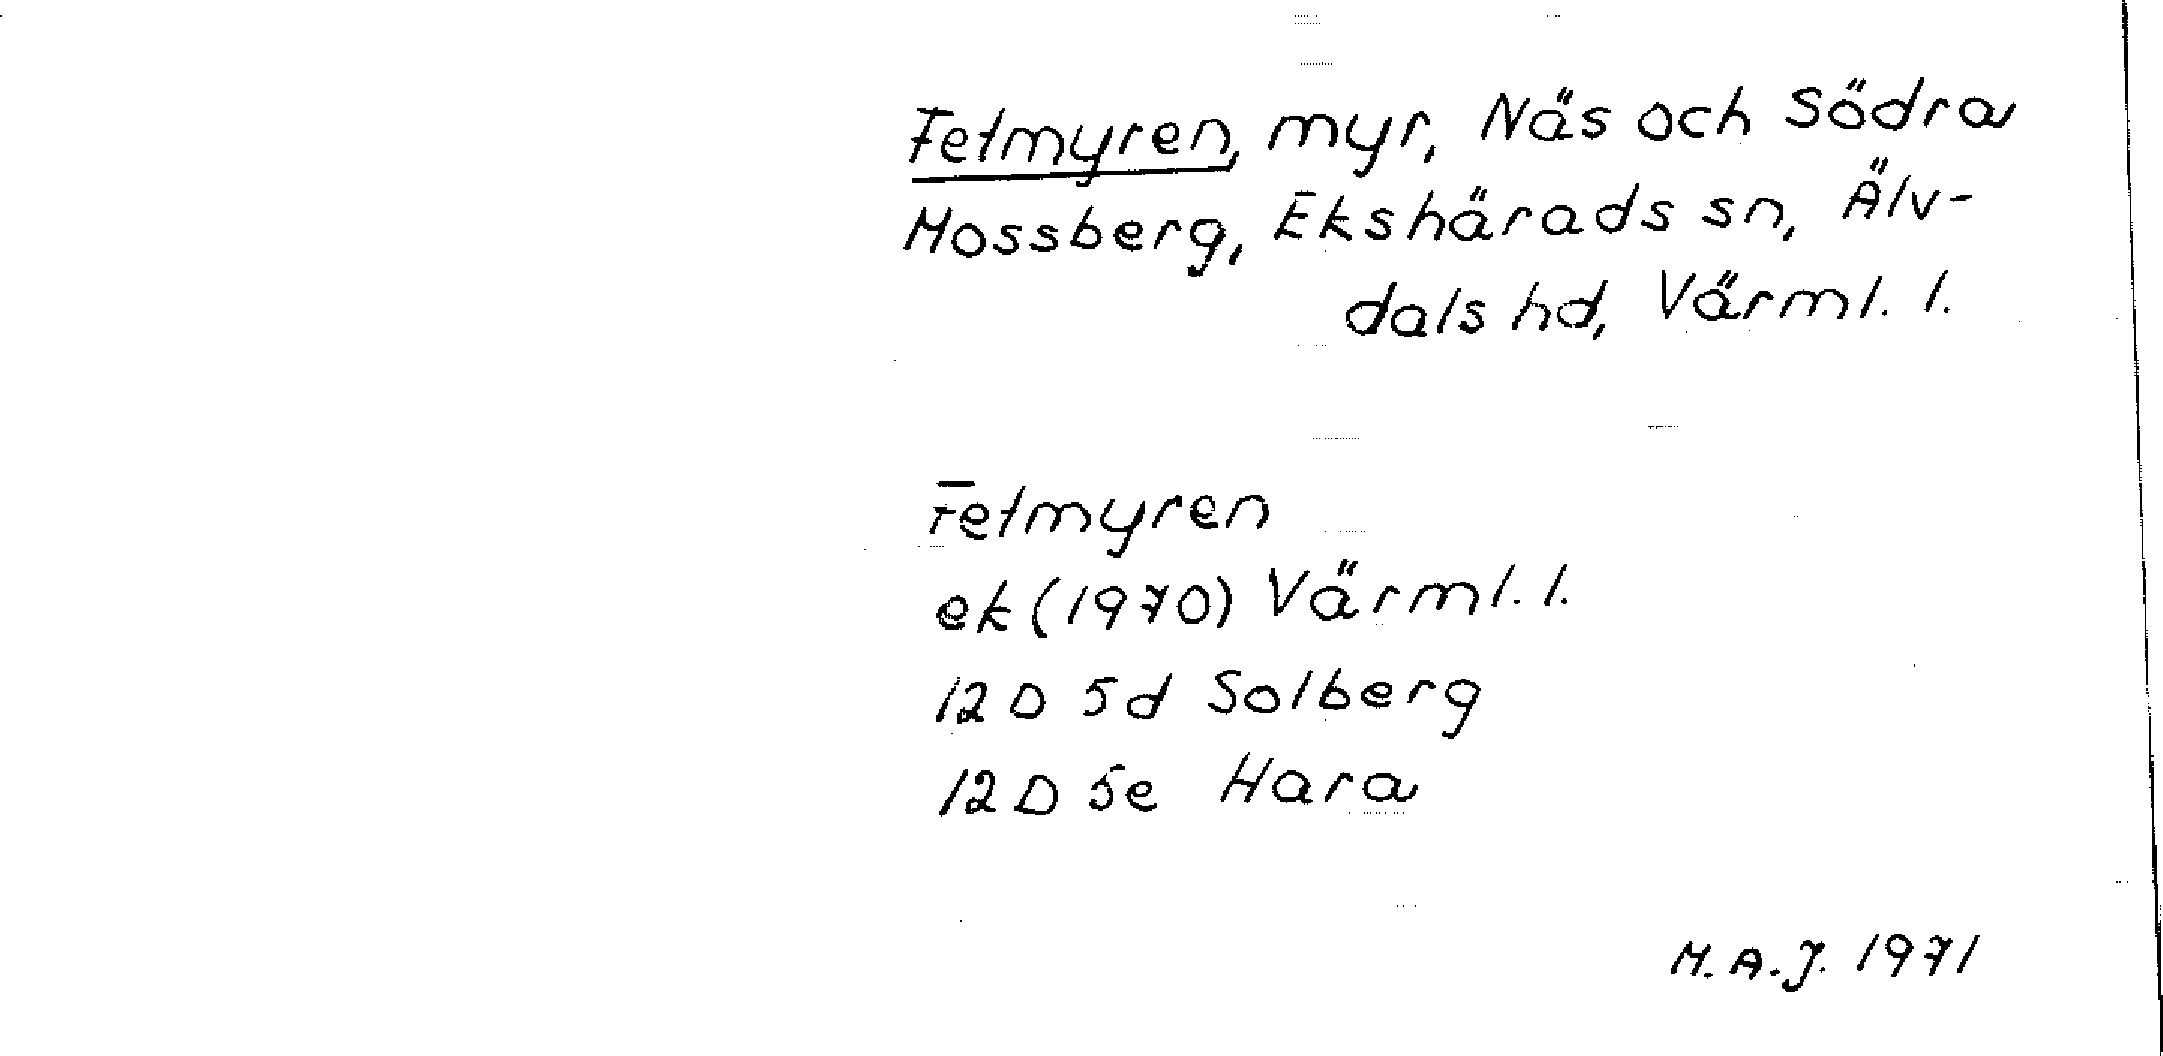 Fetmyren, myr, Näs och Södra
Mossberg, Ekshärads sn, Älv-
dals hd, Värml. l.
Fetmyren
ek (1970) Värml. l.
12 D 5d Solberg
12 D 5e Hara
M.A.J. 1971